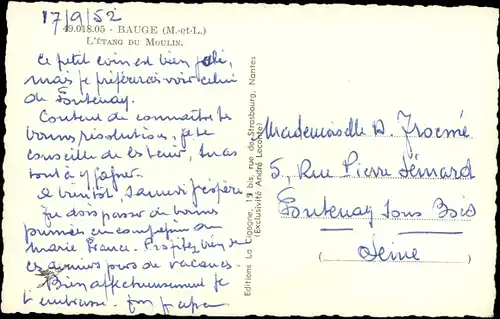 17/9/52
49.018.05 - BAUGE (M.-et-L.)
L'ÉTANG DU MOULIN.
Ce petit coin est bien joli,
mais je préférerais voir celui
de Fontenay.
Content de connaître tes
bonnes résolutions, je te
conseille de les tenir, tu as
tout à y gagner.
A bientôt, samedi j'espère
Tu dois passer de bonnes
journées en compagnie de
Marie France. Profitez bien de
ces derniers jours de vacances.
Bien affectueusement je
t'embrasse. Ton papa
Editions La Cigogne, 13 bis, rue de Strasbourg, Nantes
(Exclusivité André Lecomte)
Mademoiselle D.
5, Rue Pierre Sémard
Fontenay sous Bois
(Seine)